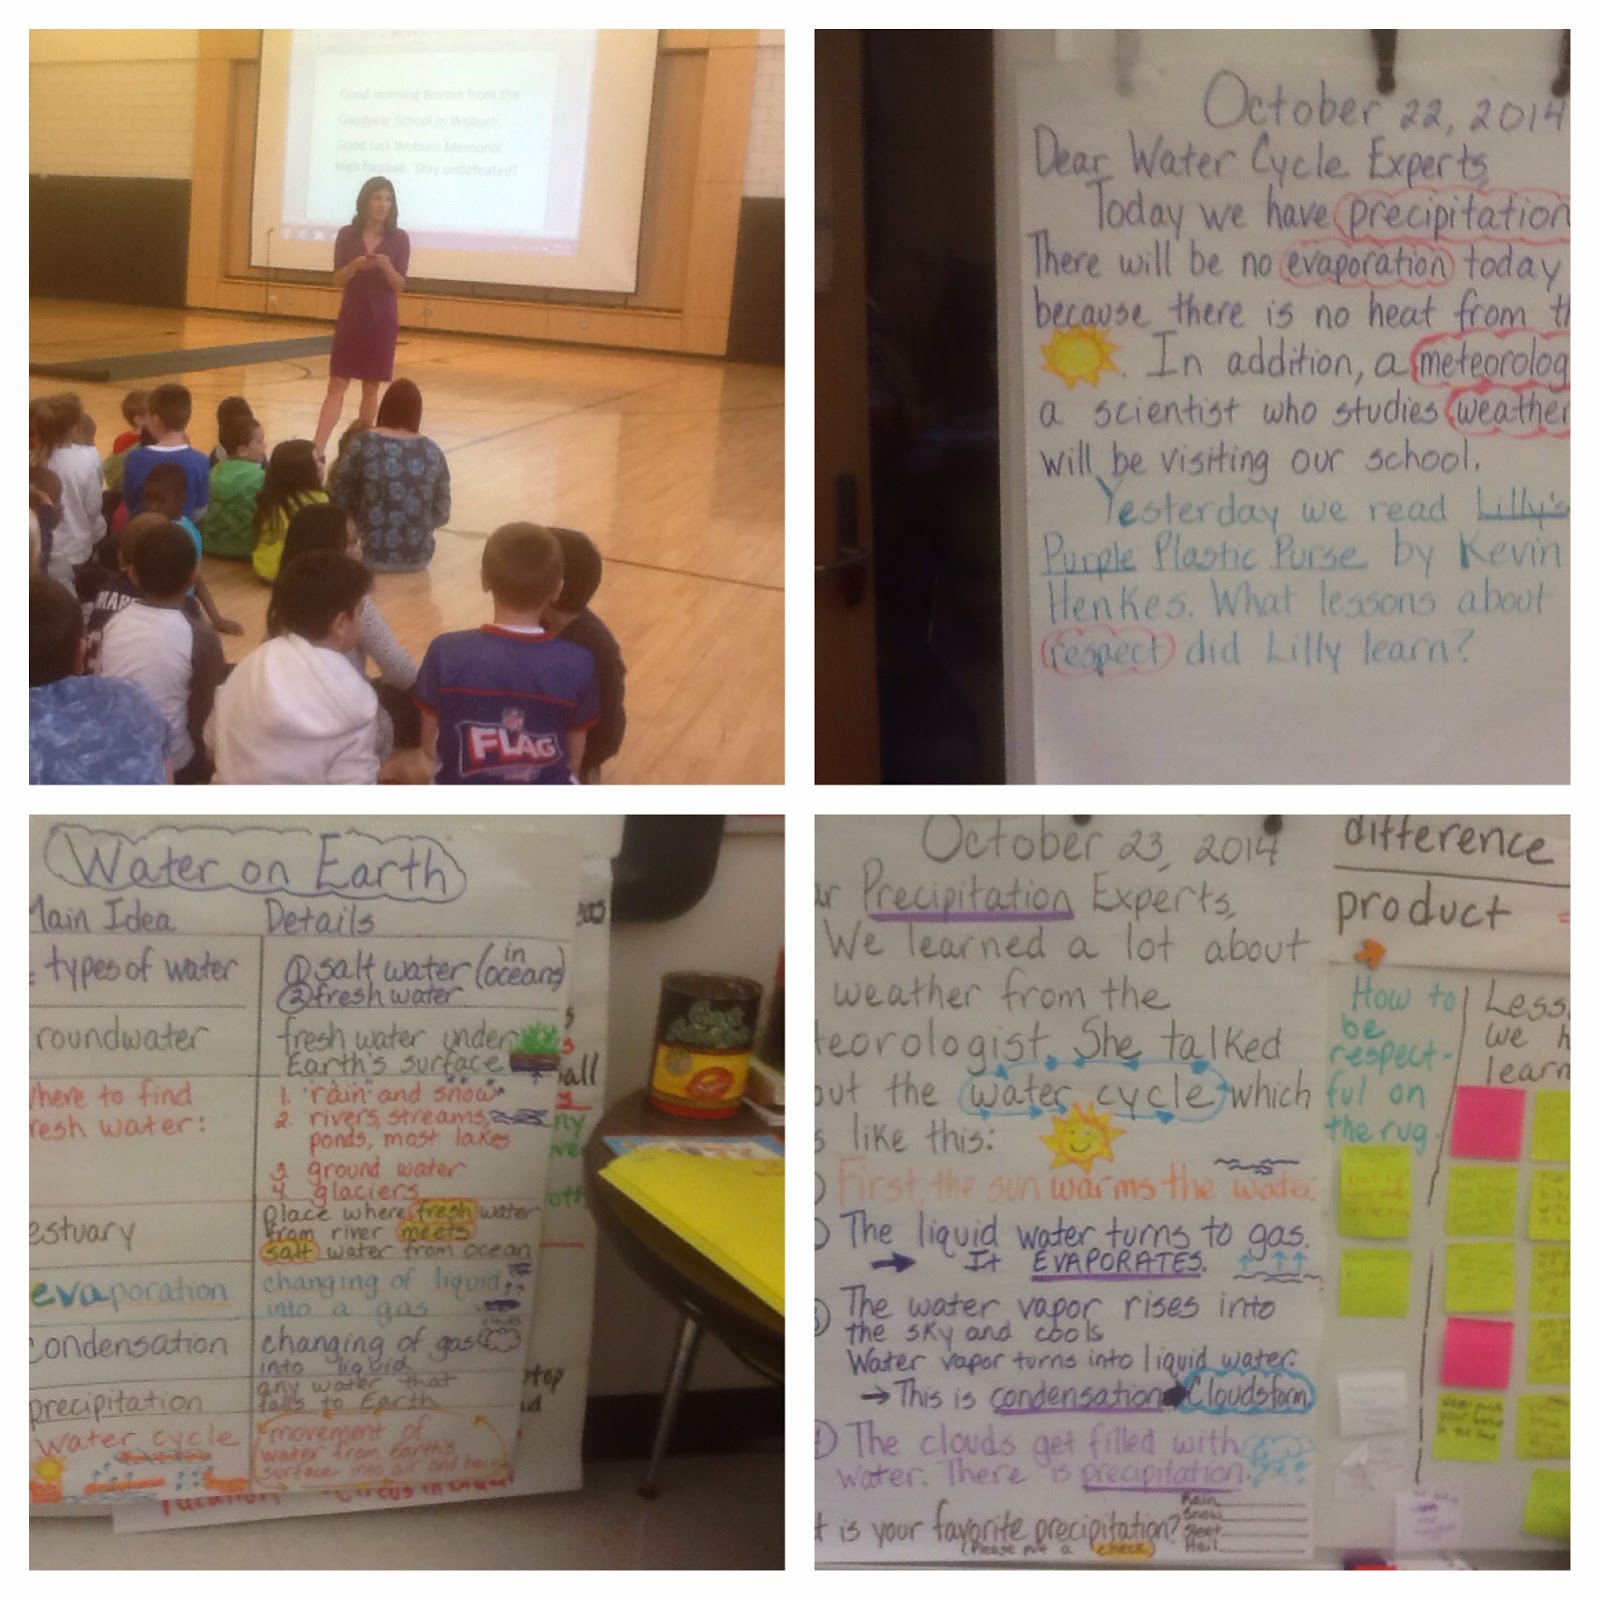 Good morning Boston from the
Goodyear School in Woburn
Good luck Woburn Memorial
High football. Stay undefeated!
FLAG
October 22, 2014
Dear Water Cycle Experts,
Today we have precipitation
There will be no evaporation today
because there is no heat from th
. In addition, a meteorolog
a scientist who studies weather
will be visiting our school.
Yesterday we read Lilly's
Purple Plastic Purse by Kevin
Henkes. What lessons about
respect did Lilly learn?
Water on Earth
Main Idea Details
types of water ① salt water (in oceans)
② fresh water
roundwater fresh water under
Earth's surface
here to find 1. rain and snow
resh water: 2. rivers, streams,
ponds, most lakes
3. ground water
4. glaciers
estuary place where fresh water
from river meets
salt water from ocean
evaporation changing of liquid
into a gas
clouds
condensation changing of gas
into liquid
precipitation any water that
falls to Earth
water cycle movement of
water from Earth's
surface into air and
October 23, 2014
r Precipitation Experts,
We learned a lot about
weather from the
teorologist. She talked
out the water cycle which
s like this:
First, the sun warms the water.
The liquid water turns to gas.
→ It EVAPORATES.
The water vapor rises into
the sky and cools
Water vapor turns into liquid water.
→ This is condensation → Clouds form
The clouds get filled with
water. There is precipitation.
t is your favorite precipitation?
(Please put a check)
Rain
Snow
Sleet
Hail
difference
product =
How to
be
respect-
ful on
the rug
Less
we h
learn